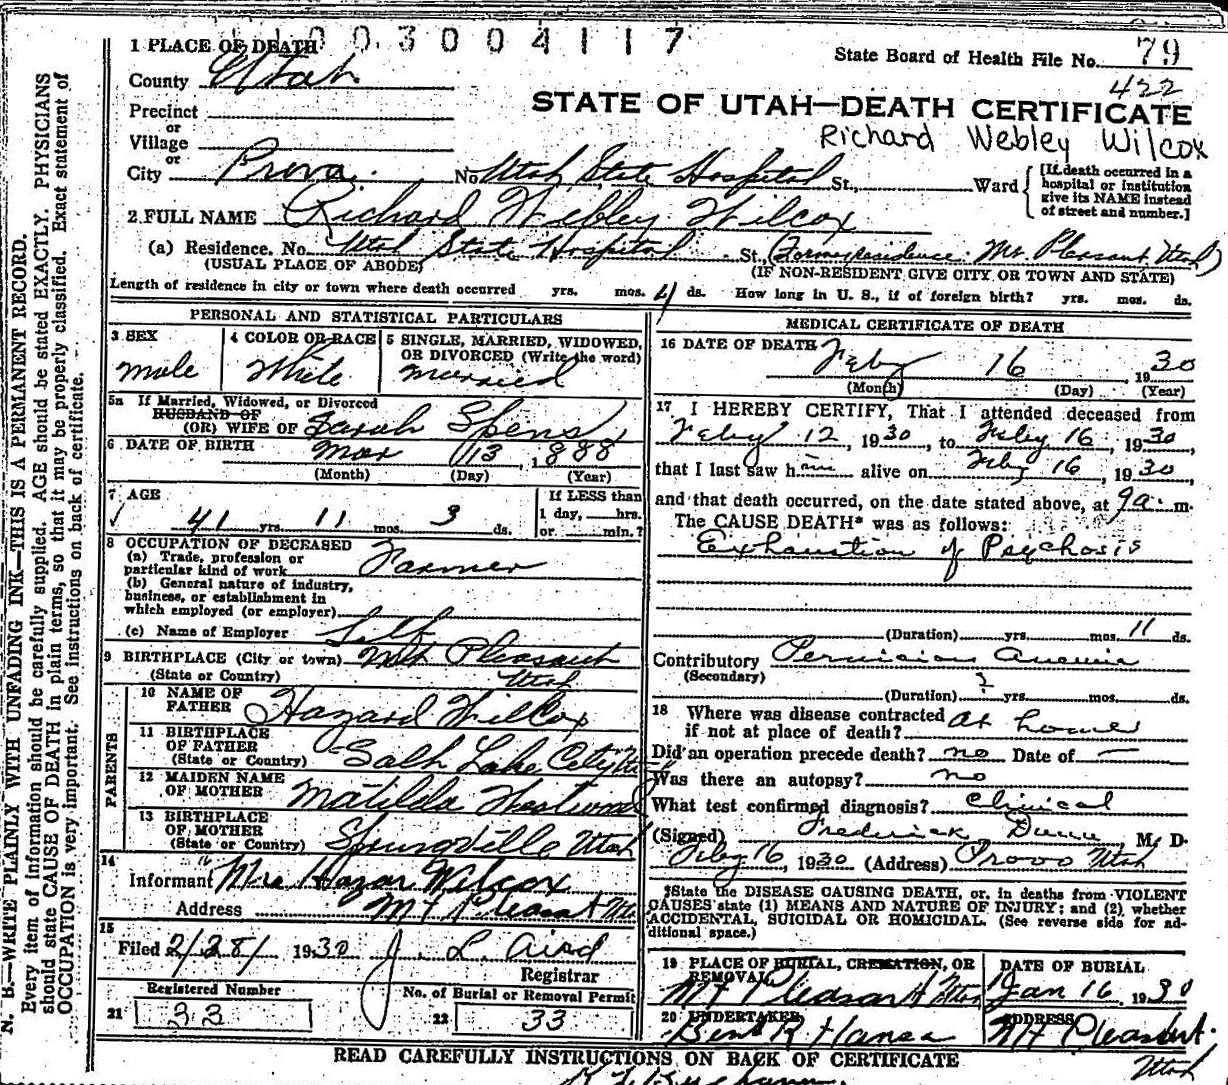 1003004117
State Board of Health File No. 79
422
STATE OF UTAH—DEATH CERTIFICATE
Richard Webley Wilcox
1 PLACE OF DEATH
County Utah
Precinct
or
Village
or
City Provo. No. Utah State Hospital St., Ward
[If death occurred in a hospital or institution give its NAME instead of street and number.]
2 FULL NAME Richard Webley Wilcox
(a) Residence. No. Utah State Hospital St., (Former residence Mt. Pleasant, Utah)
(USUAL PLACE OF ABODE) (IF NON-RESIDENT GIVE CITY OR TOWN AND STATE)
Length of residence in city or town where death occurred yrs. mos. 4 ds. How long in U. S., if of foreign birth? yrs. mos. ds.
PERSONAL AND STATISTICAL PARTICULARS
3 SEX
male
4 COLOR OR RACE
White
5 SINGLE, MARRIED, WIDOWED, OR DIVORCED (Write the word)
married
5a If Married, Widowed, or Divorced
HUSBAND OF
(OR) WIFE OF Sarah
6 DATE OF BIRTH Mar 13, 1888
(Month) (Day) (Year)
7 AGE
41 yrs. 11 mos. 3 ds.
If LESS than
1 day, hrs.
or min.?
8 OCCUPATION OF DECEASED
(a) Trade, profession or
particular kind of work Farmer
(b) General nature of industry,
business, or establishment in
which employed (or employer)
(c) Name of Employer Self
9 BIRTHPLACE (City or town) Mt Pleasant
(State or Country) Utah
PARENTS
10 NAME OF
FATHER Hazard Wilcox
11 BIRTHPLACE
OF FATHER
(State or Country) Salt Lake City Ut
12 MAIDEN NAME
OF MOTHER Matilda
13 BIRTHPLACE
OF MOTHER
(State or Country) Springville Utah
14
Informant Mrs Hazar Wilcox
Address Mt Pleasant Ut
15
Filed 2/28/ 1930 J. L. Aird
Registrar
Registered Number
21 33
No. of Burial or Removal Permit
22 33
MEDICAL CERTIFICATE OF DEATH
16 DATE OF DEATH Feby 16 1930
(Month) (Day) (Year)
17 I HEREBY CERTIFY, That I attended deceased from
Feby 12, 1930, to Feby 16, 1930
that I last saw him alive on Feby 16, 1930
and that death occurred, on the date stated above, at 9a. m.
The CAUSE DEATH* was as follows:
Exhaustion of Psychosis
(Duration) yrs. mos. 11 ds.
Contributory Pernicious anemia
(Secondary)
(Duration) ? yrs. mos. ds.
18 Where was disease contracted
if not at place of death? at home
Did an operation precede death? no Date of —
Was there an autopsy? no
What test confirmed diagnosis? clinical
(Signed) Frederick Dunn M. D.
Feby 16, 1930 (Address) Provo Utah
*State the DISEASE CAUSING DEATH, or, in deaths from VIOLENT
CAUSES state (1) MEANS AND NATURE OF INJURY; and (2) whether
ACCIDENTAL, SUICIDAL OR HOMICIDAL. (See reverse side for ad-
ditional space.)
19 PLACE OF BURIAL, CREMATION, OR
REMOVAL
Mt Pleasant Utah
DATE OF BURIAL
Jan 16 1930
20 UNDERTAKER
ADDRESS
Mt Pleasant.
Utah
READ CAREFULLY INSTRUCTIONS ON BACK OF CERTIFICATE
N. B.—WRITE PLAINLY WITH UNFADING INK—THIS IS A PERMANENT RECORD.
Every item of information should be carefully supplied. AGE should be stated EXACTLY. PHYSICIANS
should state CAUSE OF DEATH in plain terms, so that it may be properly classified. Exact statement of
OCCUPATION is very important. See instructions on back of certificate.